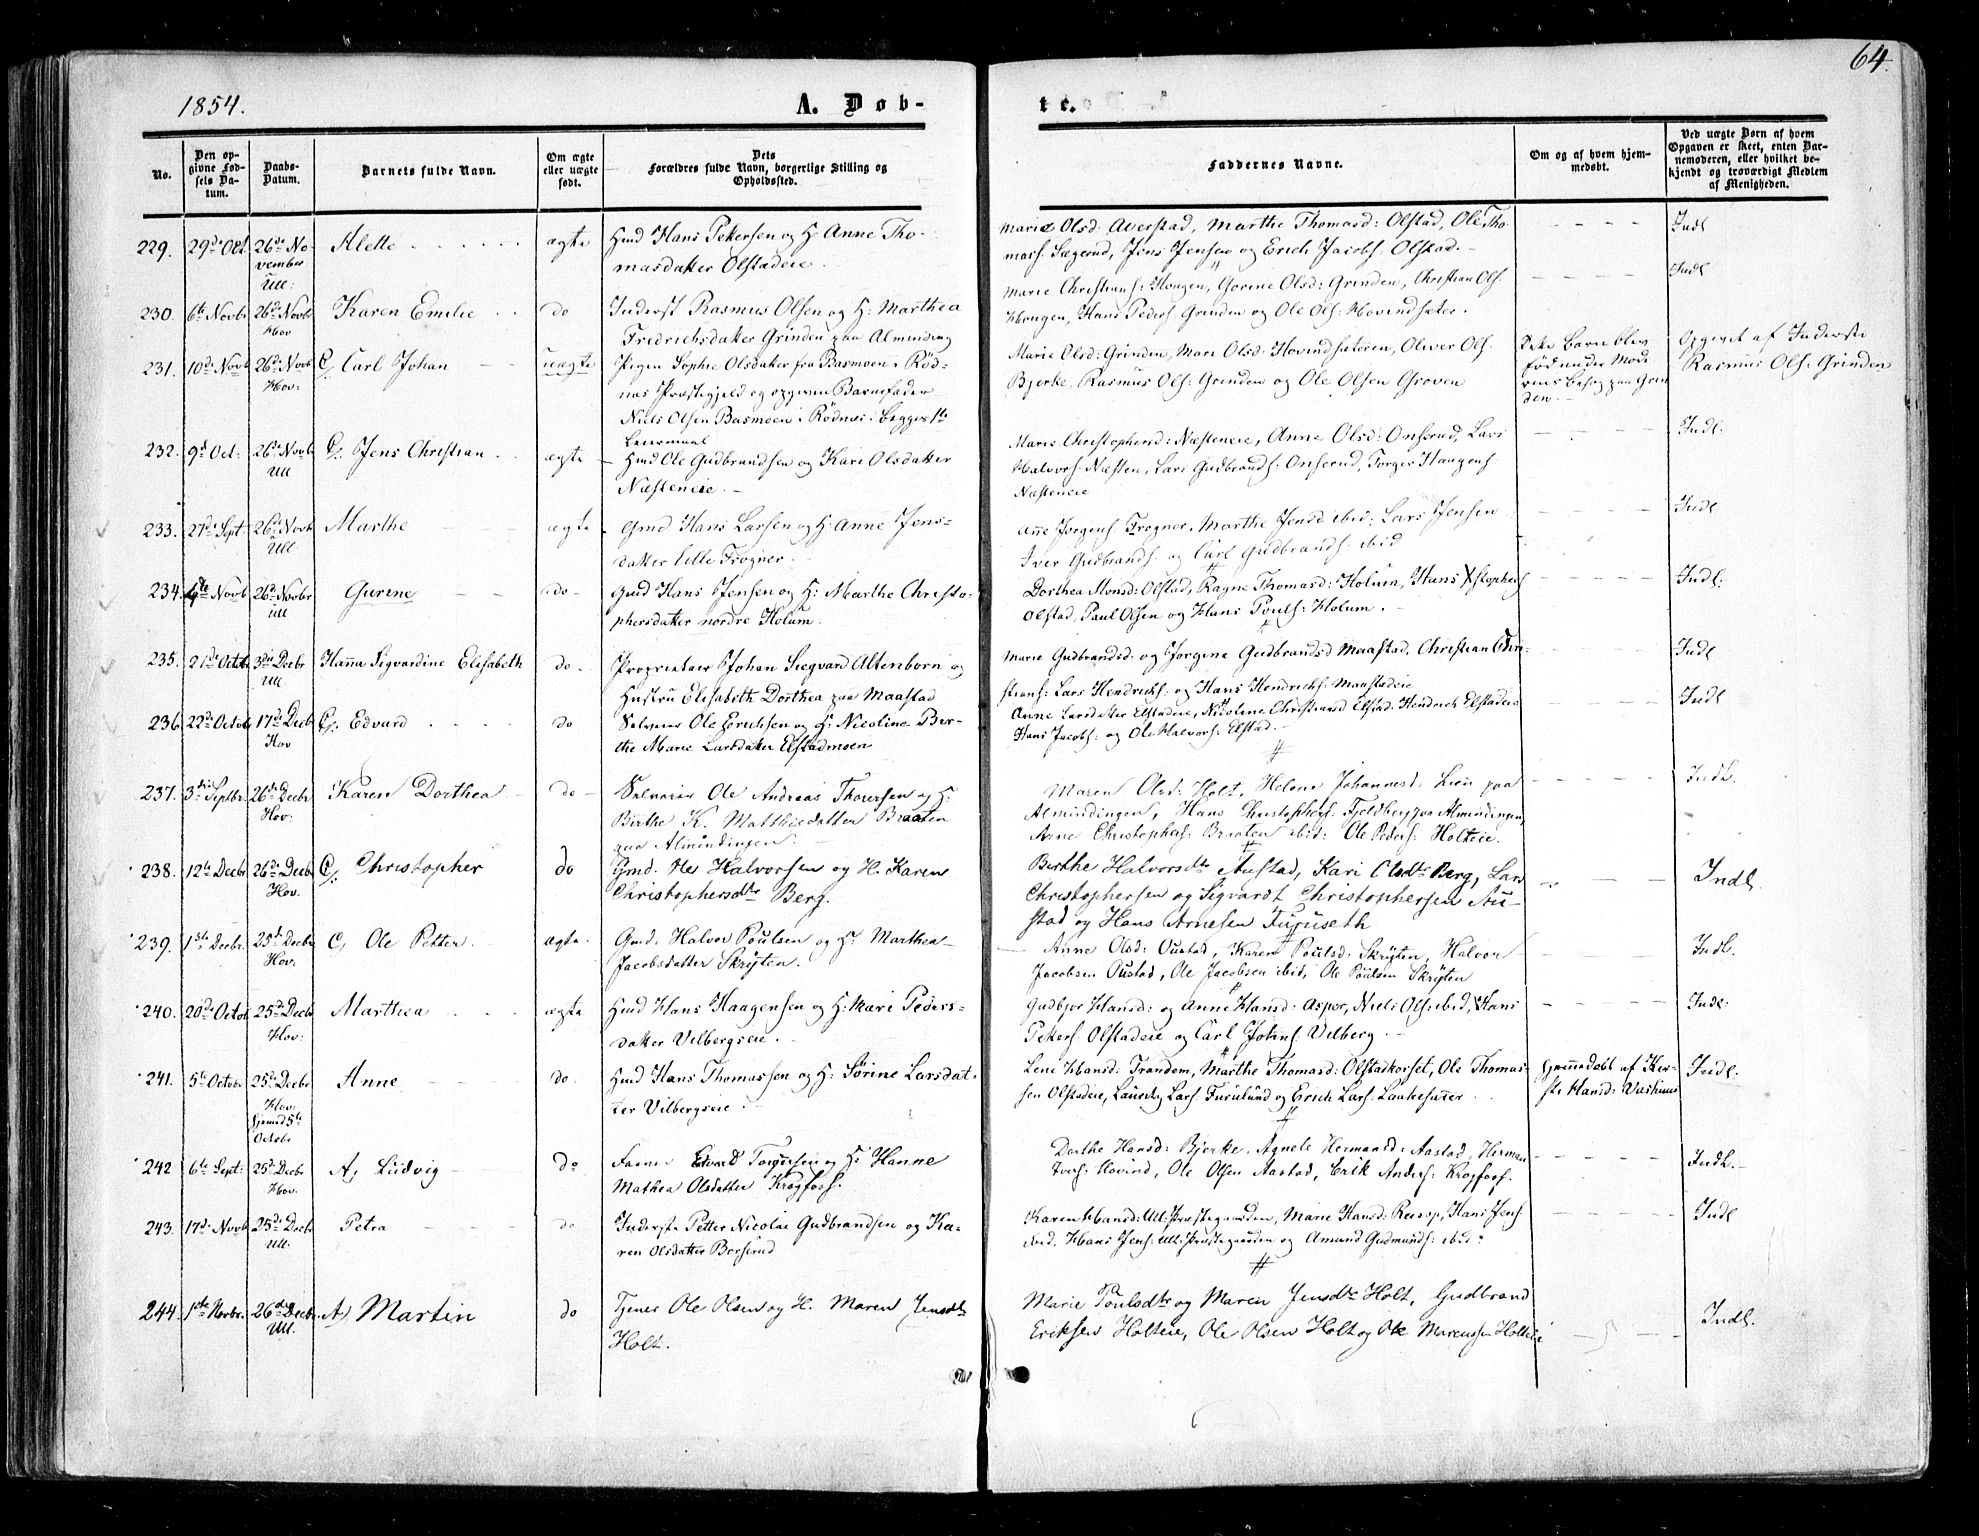 64.
1854.
A. Døb-
te.
No.
Den op-
givne Fød-
sels Da-
tum.
Daabs-
Datum.
Barnets fulde Navn.
Om ægte
eller uægte
født.
Dets
Forældres fulde Navn, borgerlige Stilling og
Opholdssted.
Faddernes Navne.
Om og af hvem hjem-
medøbt.
Ved uægte Børn af hvem
Opgaven er skeet, enten Bar-
nemoderen, eller hvilket be-
kjendt og troværdigt Medlem
af Menigheden.
229. 29de Oct. 26de No- Alette ægte Hmd Hans Petersen og H: Anne Tho-
vember
Ull:
masdatter Olstadeie.
Marie Olsd: Averstad, Marthe Thomasd: Olstad, Ole Tho-
mass. Sægerud, Jens Jensen og Erich Jacobs: Olstad.
Indl
230. 6te Novbr 26de Novbr Karen Emilie do Inderst Rasmus Olsen og H: Marthea
Hov
Fredrichsdatter Grinden paa Alminding
Marie Christians: Hougen, Gorine Olsd: Grinden, Christian Ols.
Hougen, Hans Peders: Grinden og Ole Ols: Hovindsæter.
Indl
231. 10de Novb 26de Novb C, Carl Johan uægte Pigen Sophie Olsdatter fra Basmoen i Rød-
Hov:
næs Præstegjeld og opgiven Barnefader
Niels Olsen Basmoen i Rødnæs. begges 1ste
Leiermaal
Marie Olsd: Grinden, Mari Olsd: Hovindsæteren, Oliver Ols.
Bjerke, Rasmus Ols: Grinden og Ole Olsen Groven
Dette Barn blev
fød under Mode
rens besøg paa Grin
den.
Opgivet af Inderste
Rasmus Ols: Grinden
232. 9de Oct: 26de Novb C, Jens Christian ægte Hmd Ole Gudbrandsen og Kari Olsdatter
Ull
Næsteneie.
Marie Christophersd: Næsteneie, Anne Olsd: Onserud, Lars
Halvors: Næsten, Lars Gudbrands: Onserud, Torger Haagens:
Næsteneie
Indl:
233. 27de Sept: 26de Novb Marthe ægte Gmd Hans Larsen og H: Anne Jens-
Ull
datter lille Frogner.
Anne Jorgens Frogner, Marthe Jensd ibid: Lars Jensen
Iver Gudbrands: og Carl Gudbrands: ibid
Indl
234. 4de Novb 26de Novbr Gurine do Gmd Hans Jensen og H: Marthe Christo-
Ull
phersdatter nordre Holum.
Dorthea Monsd: Olstad, Ragne Thomasd: Holum, Hans Xstophers
Olstad, Paul Olsen og Hans Pouls: Holum.
Indl:
235. 21de Octbr 3die Decbr Hanna Sigvardine Elisabeth do. Proprietair Johan Siegvard Altenborn og
Ull
Hustru Elisabeth Dorthea paa Maastad
Marie Gudbrandsd: og Jorgine Gudbrandsd Maastad, Christian Chri-
stians: Lars Hendrichs: og Hans Hendrichs: Maastadeie
Indl
236. 22de Octob 17de Decb C, Edvard do Selveier Ole Erichsen og H: Nicoline Ber-
Hov
the Marie Larsdatter Elstadmoen
Anne Larsdatter Elstadeie, Nicoline Christiansd Elstad. Hendrich Elstadeie
Hans Jacobs: og Ole Halvors: Elstad.
Indl
237. 3die Septbr. 26de Decbr Karen Dorthea do Selveier Ole Andreas Thoresen og H:
Hov:
Birthe K. Matthisdatter Braaten
paa Almindingen.
Maren Olsd: Holt, Helene Johannesd: Lien paa
Almindingen, Hans Christophers: Fjeldberg paa Almindingen,
Arne Christophers: Braaten ibid: Ole Peders: Holteie.
Indl.
238. 12te Decbr 26de Decbr C, Christopher do Gmd. Ole Halvorsen og H. Karen
Hov.
Christophersdtr Berg.
Berthe Halvorsdtr Austad, Kari Olsdtr Berg, Lars
Christophersen og Sigvardt Christophersen Au-
stad og Hans Arnesen Furuseth
Indl.
239. 1ste Decbr. 25de Decbr C, Ole Petter. ægte. Gmd. Halvor Poulsen og H: Marthea
Hov:
Jacobsdatter Skrigten.
Anne Olsd: Oustad, Karen Poulsd: Skrigten, Halvor
Jacobsen Oustad, Ole Jacobsen ibid, Ole Poulsen Skrigten
Indl.
240. 20de Octob 25de Decbr Marthea ægte Hmd Hans Haagensen og H: Mari Peders-
Hov:
datter Vilbergseie.
Gudbjor Hansd: og Anne Hansd: Asper, Niels Ols: ibid, Hans
Peters. Olstadeie og Carl Johns Vilberg.
Indl:
241. 5te Octobr 25de Decbr Anne do. Hmd Hans Thomassen og H: Sørine Larsdat-
Hov:
hjemd 5te
Octobr
ter Vilbergseie.
Lene Hansd: Trandem, Marthe Thomasd: Olstadkorset, Ole Thomas-
sen Olstadeie, Laurits Lars. Furulund og Erich Lars: Lautesæter.
Hjemmedøbt af Kir-
sti Hansd:
Indl:
242 6te Sept: 25de Decbr A, Ludvig do Edvard Torgersen og H: Hanne
Hov.
Mathea Olsdatter Krogfoss.
Dorthe Hansd: Bjerke, Agnete Hermansd: Aastad, Herman
Ivers: Hovind, Ole Olsen Aastad, Erik Anders: Krogfoss.
Indl.
243. 17de Novb 25de Decb Petra do Inderste Petter Nicolai Gudbrandsen og Ka-
Ull.
ren Olsdatter Borserud
Karen Hansd: Ull: Præstegaarden, Marie Hansd: Hans Jens
ibid. Hans Jens: Ull: Præstegaarden og Amund Gudmunds: ibid:
Indl
244. 1ste Novbr. 26de Decbr. A) Martin do Tjener Ole Olsen og H. Maren Jensdtr
Ull.
Holt.
Marie Poulsdtr og Maren Jensdtr Holt, Gudbrand
Eriksen Holteie, Ole Olsen Holt og Ole Marcussen Holteie
Indl.